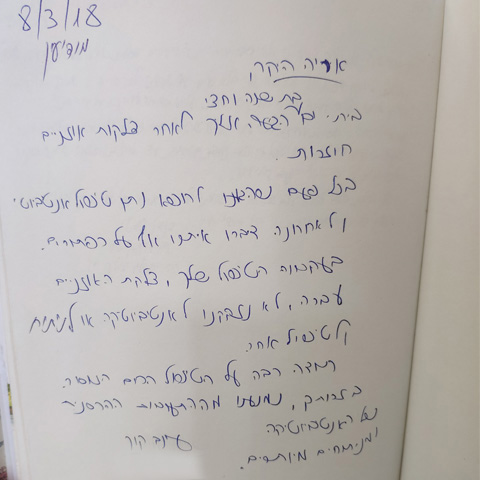 8/3/18
מודיעין
אריה היקר,
בת שנה וחצי
ביתי הגיעה אליך לאחר דלקות אוזניים
חוזרות.
בכל פעם שהגענו לרופא ניתן טיפול אנטיביוטי
ולאחרונה דיברו איתנו אף על כפתורים.
בעקבות הטיפול שלך, דלקת האוזניים
עברה, ולא נזקקנו לאנטביוטיקה או לניתוח
או לטיפול אחר.
תודה רבה על הטיפול המסור.
בזכותך, נמנענו מההתערבות ההרסנית
של האנטביוטיקה
ומניתוחים מיותרים.
עינב קור